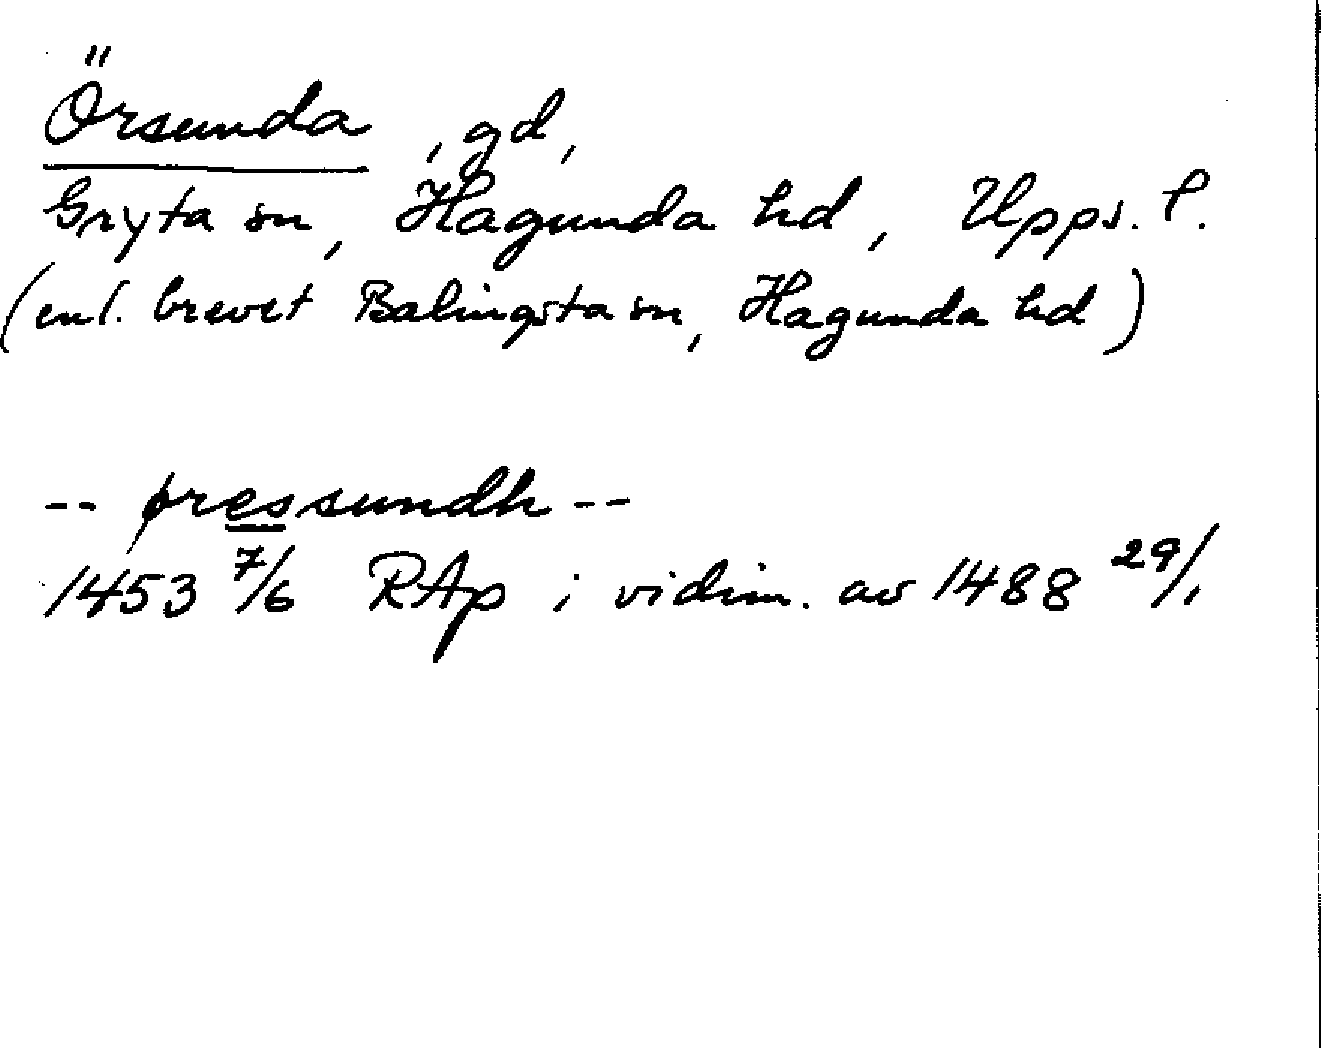 Örsunda, gd,
Gryta sn, Hagunda hd, Upps. l.
(enl. brevet Balingsta sn, Hagunda hd)
-- øressundh --
1453 7/6 RAp i vidim. av 1488 29/1